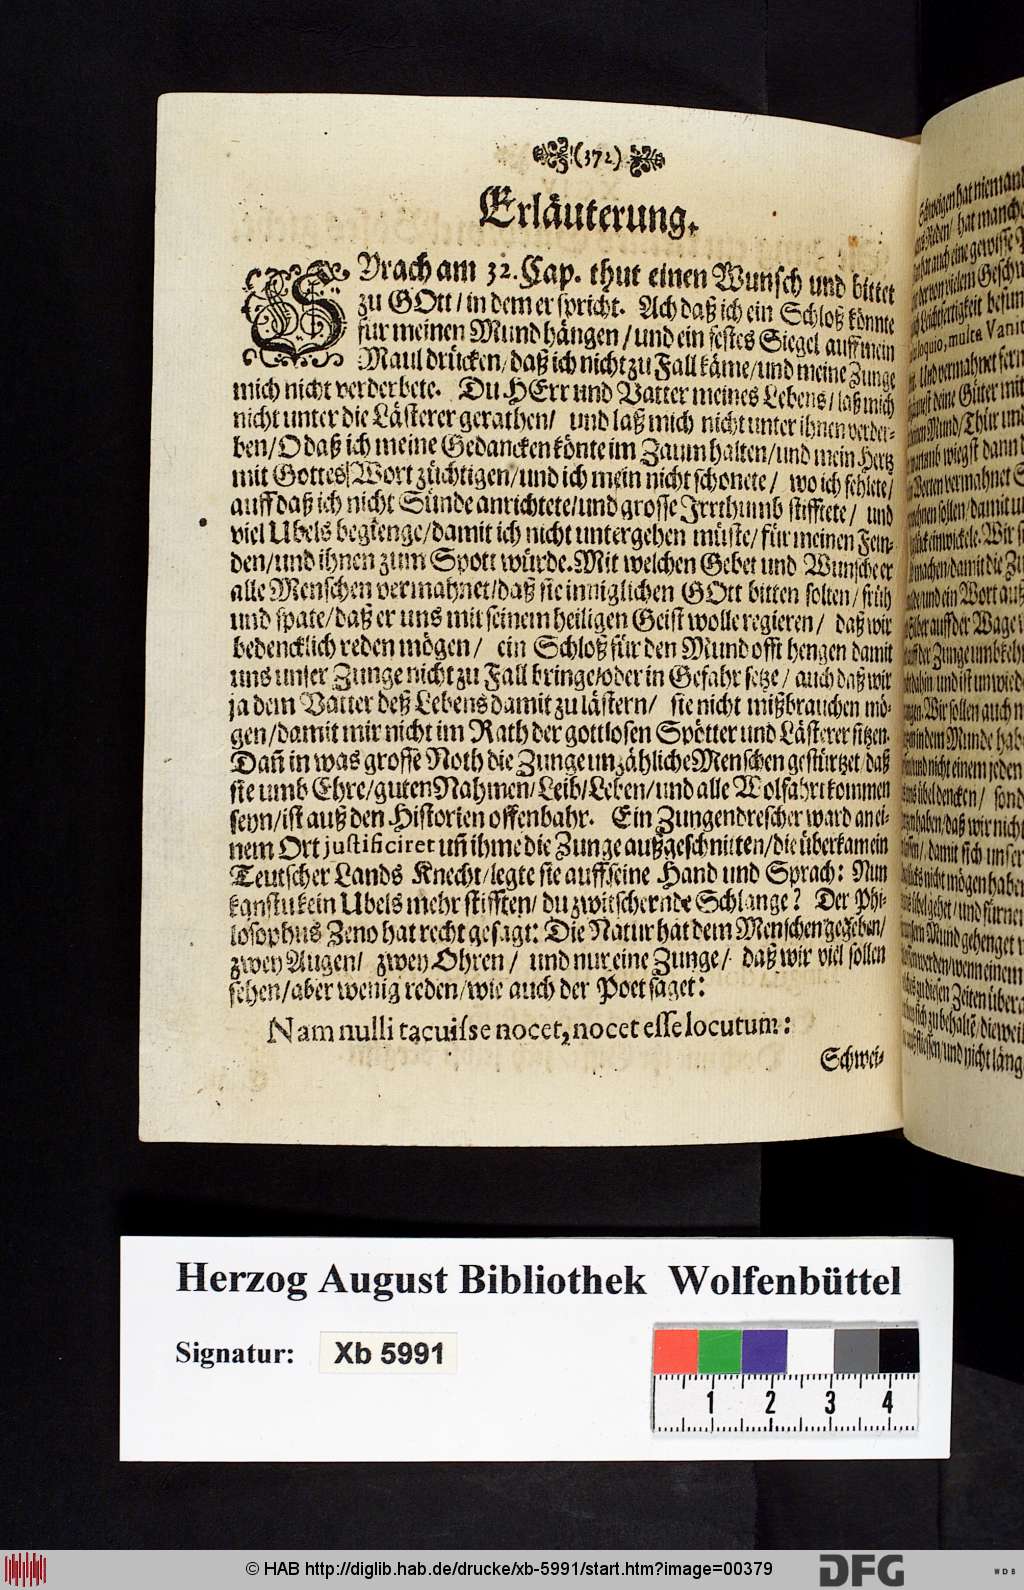 (172)
Erläuterung.
SYrach am 32. Cap. thut einen Wunsch und bittet
zu GOtt / in dem er spricht. Ach daß ich ein Schloß könnte
für meinen Mund hängen / und ein festes Siegel auff mein
Maul drücken / daß ich nicht zu Fall käme / und meine Zunge
mich nicht verderbete. Du HErr und Vatter meines Lebens / laß mich
nicht unter die Lästerer gerathen / und laß mich nicht unter ihnen verder-
ben / O daß ich meine Gedancken könte im Zaum halten / und mein Hertz
mit Gottes Wort züchtigen / und ich mein nicht schonete / wo ich fehlete /
auff daß ich nicht Sünde anrichtete / und grosse Irrthumb stifftete / und
viel Ubels begienge / damit ich nicht untergehen müste / für meinen Fein-
den / und ihnen zum Spott würde. Mit welchen Gebet und Wunsche er
alle Menschen vermahnet / daß sie inniglichen GOtt bitten solten / früh
und spate / daß er uns mit seinem heiligen Geist wolle regieren / daß wir
bedencklich reden mögen / ein Schloß für den Mund offt hengen damit
uns unser Zunge nicht zu Fall bringe / oder in Gefahr setze / auch daß wir
ja dem Vatter deß Lebens damit zu lästern / sie nicht mißbrauchen mö-
gen / damit wir nicht im Rath der gottlosen Spötter und Lästerer sitzen.
Dañ in was grosse Noth die Zunge unzähliche Menschen gestürtzet / daß
sie umb Ehre / guten Nahmen / Leib / Leben / und alle Wolfahrt kommen
seyn / ist auß den Historien offenbahr. Ein Zungendrescher ward an ei-
nem Ort justificiret uñ ihme die Zunge außgeschnitten / die überkam ein
Teutscher Lands Knecht / legte sie auff seine Hand und Sprach: Nun
kanstu kein Ubels mehr stifften / du zwitschernde Schlange? Der Phi-
losophus Zeno hat recht gesagt: Die Natur hat dem Menschen gegeben /
zwey Augen / zwey Ohren / und nur eine Zunge / daß wir viel sollen
sehen / aber wenig reden / wie auch der Poet saget:
Nam nulli tacuisse nocet, nocet esse locutum:
Schwei-
Herzog August Bibliothek Wolfenbüttel
Signatur: Xb 5991
1 2 3 4
© HAB http://diglib.hab.de/drucke/xb-5991/start.htm?image=00379
DFG
WDB